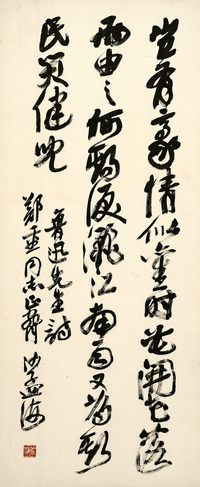 岂有豪情似旧时花开花落
两由之何期泪洒江南雨又为斯
民哭健儿
鲁迅先生诗
郑重同志正 沙孟海